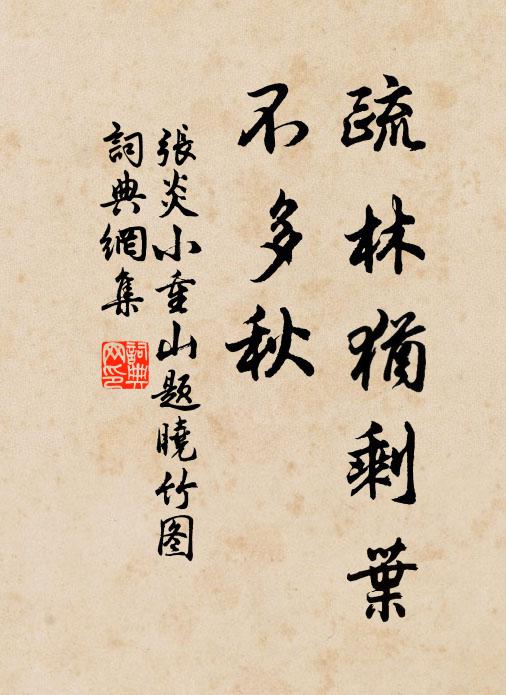 疏林猶剩葉
不多秋
張炎小重山題曉竹图
詞典網集
詞典网印